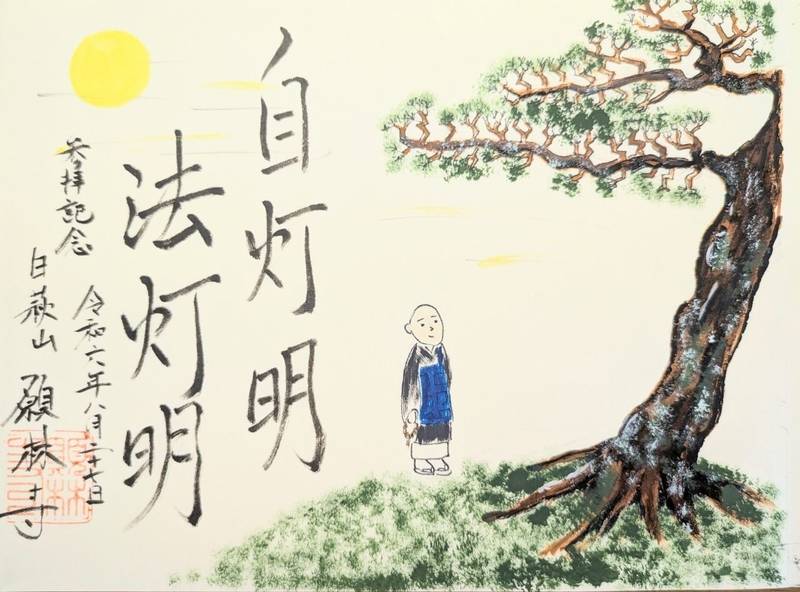 自灯明
法灯明
参拝記念
令和六年八月二十七日
白萩山 願林寺